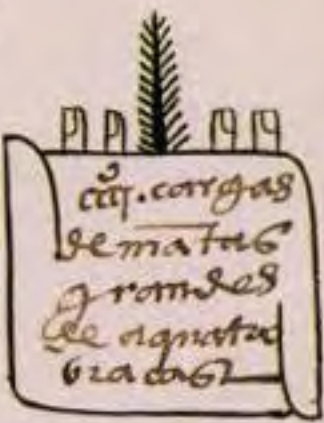 cargas
de mātas
grandes
de aquatro
bracas